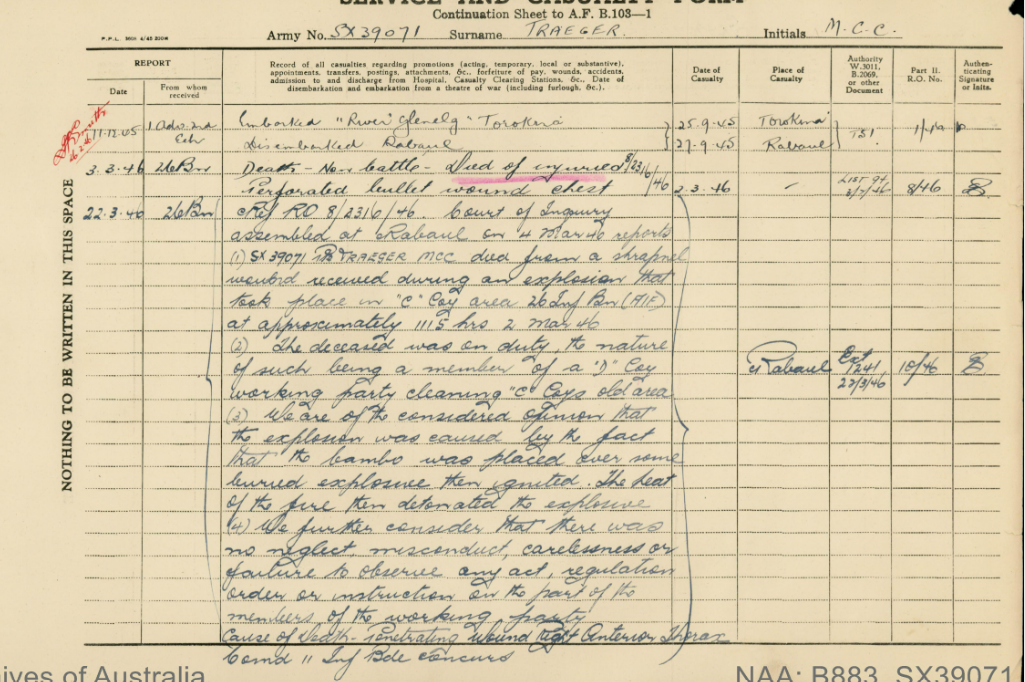 SERVICE AND CASUALTY FORM
Continuation Sheet to A.F. B.103—1
Army No. SX39071 Surname TRAEGER. Initials M.C.C.
REPORT
Date
From whom received
Record of all casualties regarding promotions (acting, temporary, local or substantive),
appointments, transfers, postings, attachments, &c., forfeiture of pay, wounds, accidents,
admission to and discharge from Hospital, Casualty Clearing Stations, &c. Date of
disembarkation and embarkation from a theatre of war (including furlough, &c.).
Date of Casualty
Place of Casualty
Authority W.3011, B.2069, or other Document
Part II. R.O. No.
Authenticating Signature or Inits.
NOTHING TO BE WRITTEN IN THIS SPACE
Embarked "River Glenelg" Torokina 25.9.45 Torokina
Disembarked Rabaul 27.9.45 Rabaul
3.3.46 26Bn Death - Non battle - Died of injuries 8/2316/46
Perforated bullet wound chest 2.3.46 - 8/46
22.3.46 26Bn Ref RO 8/2316/46. Court of Inquiry
assembled at Rabaul on 4 Mar 46 reports
(1) SX39071 Pte TRAEGER MCC died from a shrapnel
wound received during an explosion that
took place in "C" Coy area 26 Inf Bn (AIF)
at approximately 1115 hrs 2 Mar 46
(2) The deceased was on duty, the nature
of such being a member of a "D" Coy Rabaul 1241 22/3/46 10/46
working party cleaning "C" Coys old area
(3) We are of the considered opinion that
the explosion was caused by the fact
that the bambo was placed over some
buried explosive then ignited. The heat
of the fire then detonated the explosive
(4) We further consider that there was
no neglect, misconduct, carelessness or
failure to observe any act, regulation
order or instruction on the part of the
members of the working party
Cause of Death - Penetrating Wound Right Anterior Thorax
Comd 11 Inf Bde concurs
ives of Australia
NAA: B883, SX39071